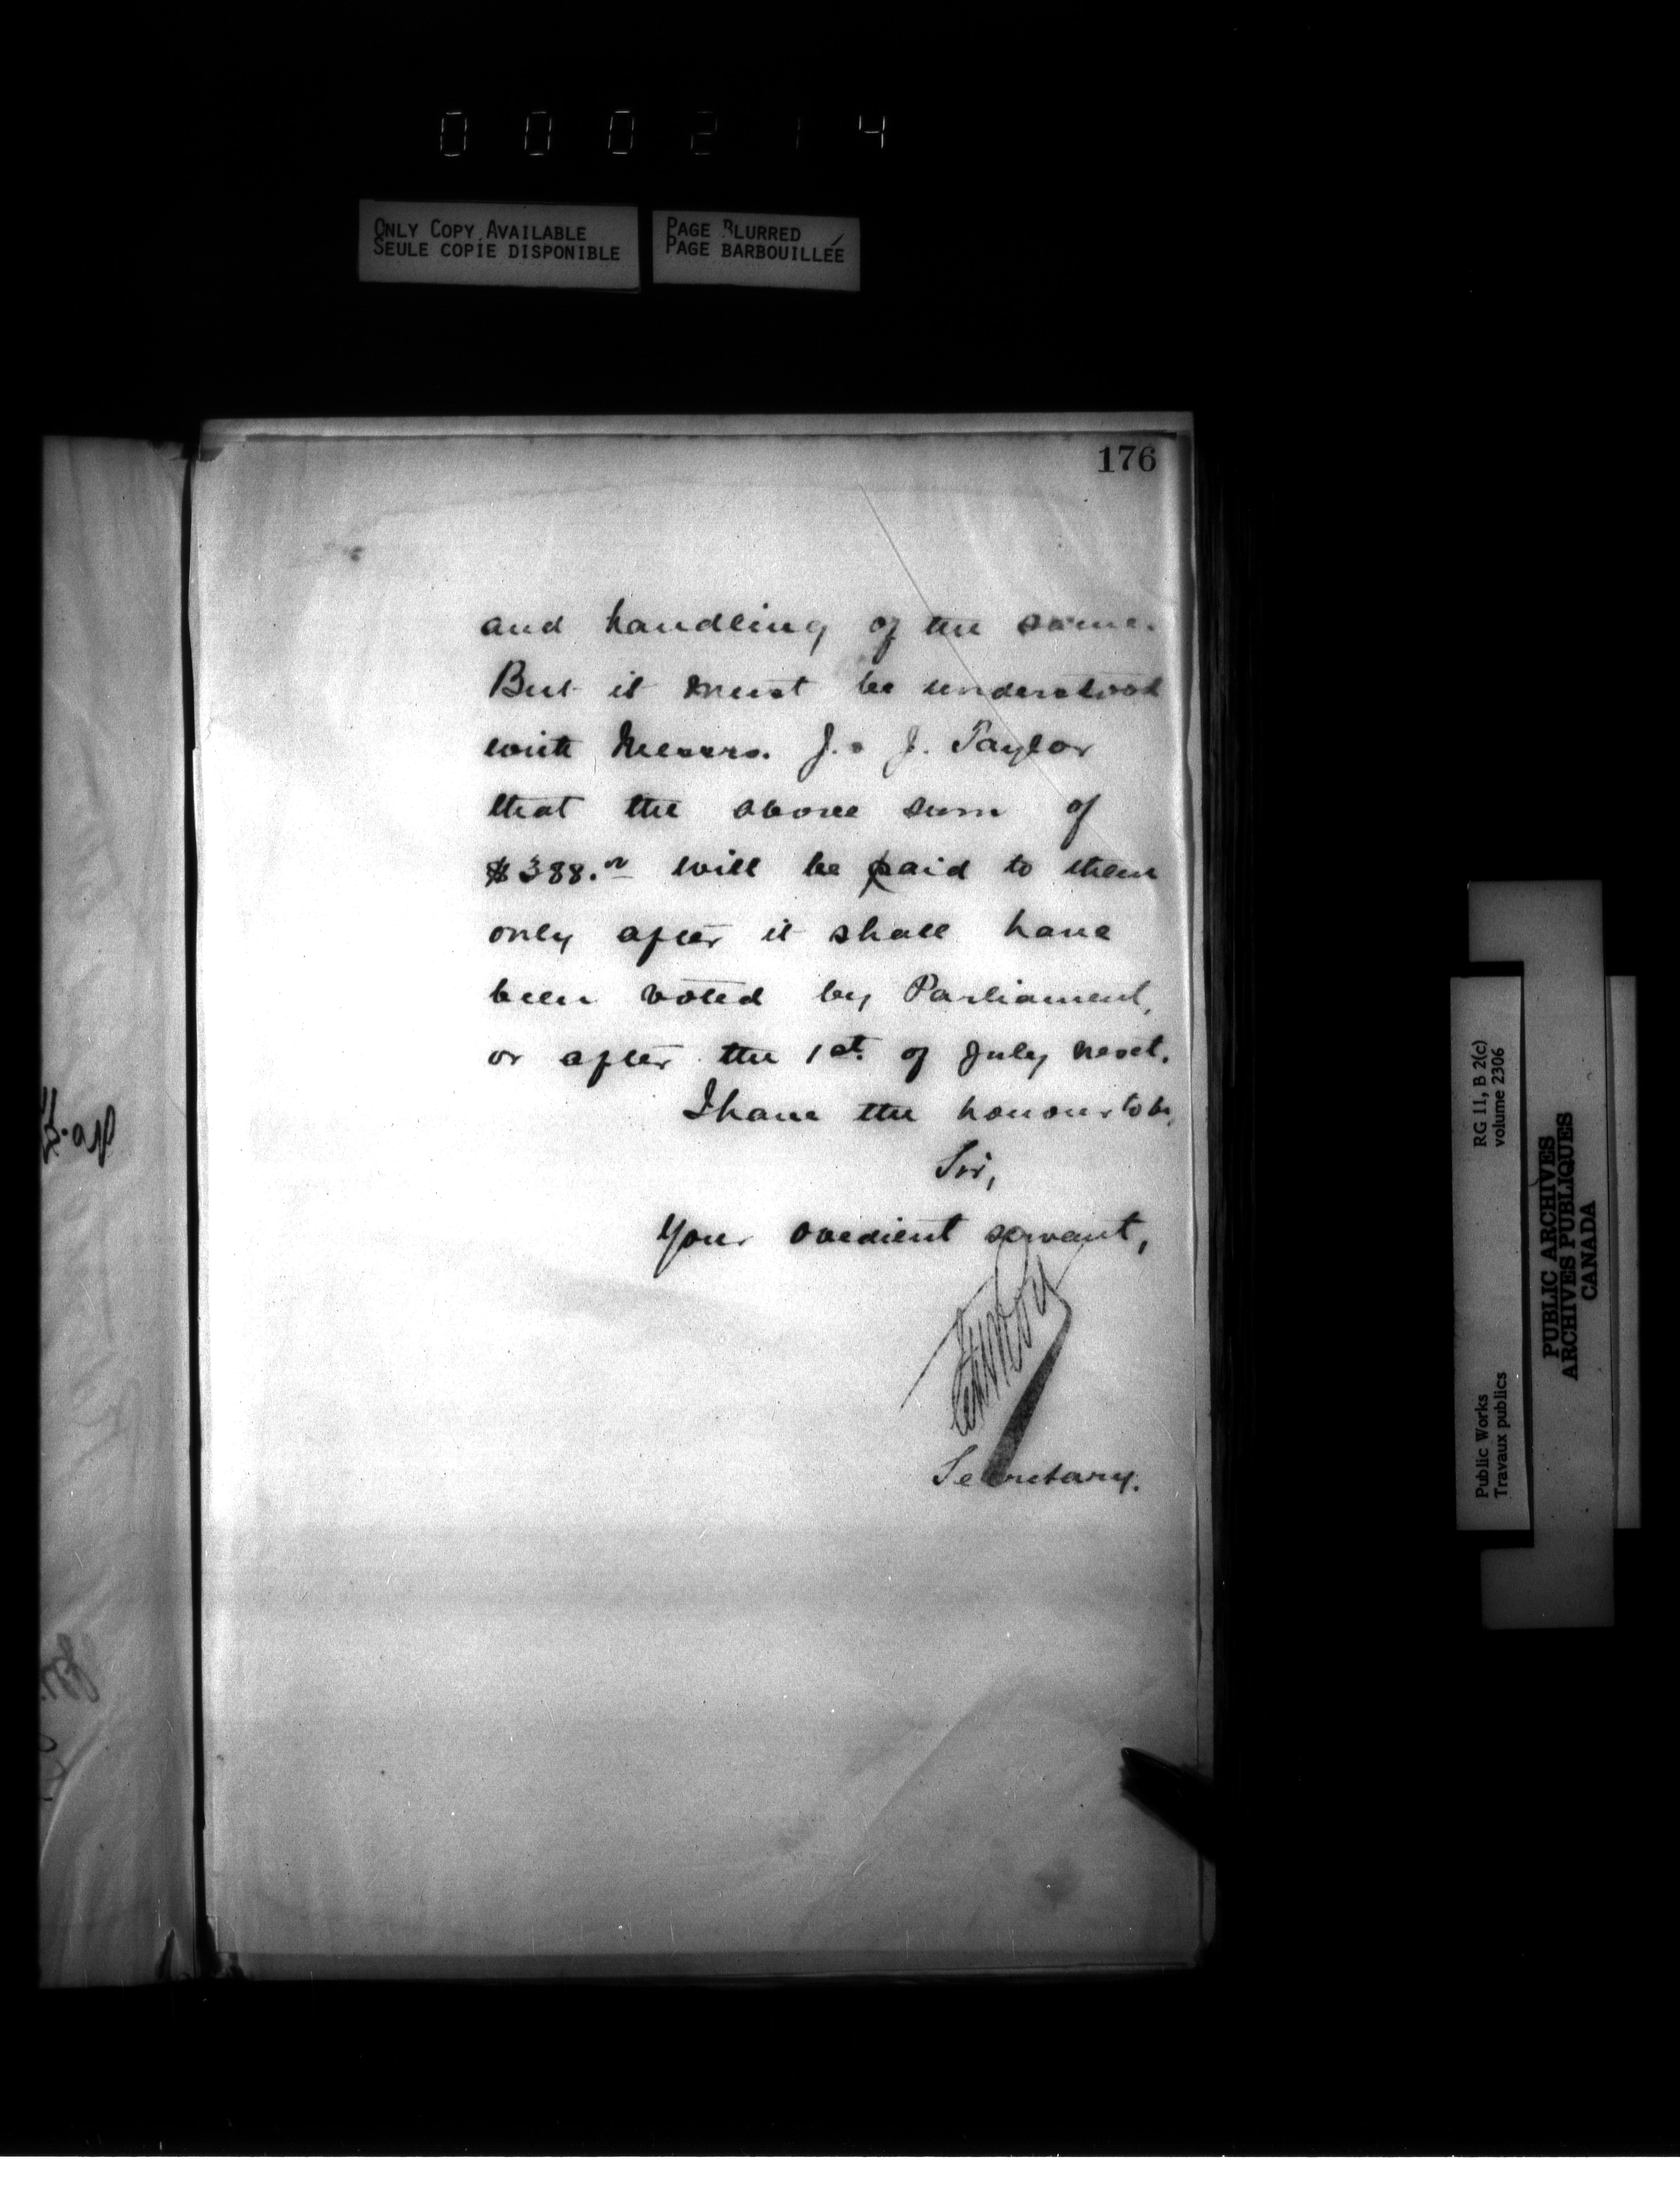 0 0 0 2 1 4
ONLY COPY AVAILABLE
SEULE COPIE DISPONIBLE
PAGE BLURRED
PAGE BARBOUILLÉE
176
and handling of the same.
But it must be understood
with Messrs. J. & J. Taylor
that the above sum of
$388.00 will be paid to them
only after it shall have
been voted by Parliament,
or after the 1st. of July next.
I have the honour to be,
Sir,
Your obedient servant,
Secretary.
RG 11, B 2(c)
volume 2306
Public Works
Travaux publics
PUBLIC ARCHIVES
ARCHIVES PUBLIQUES
CANADA